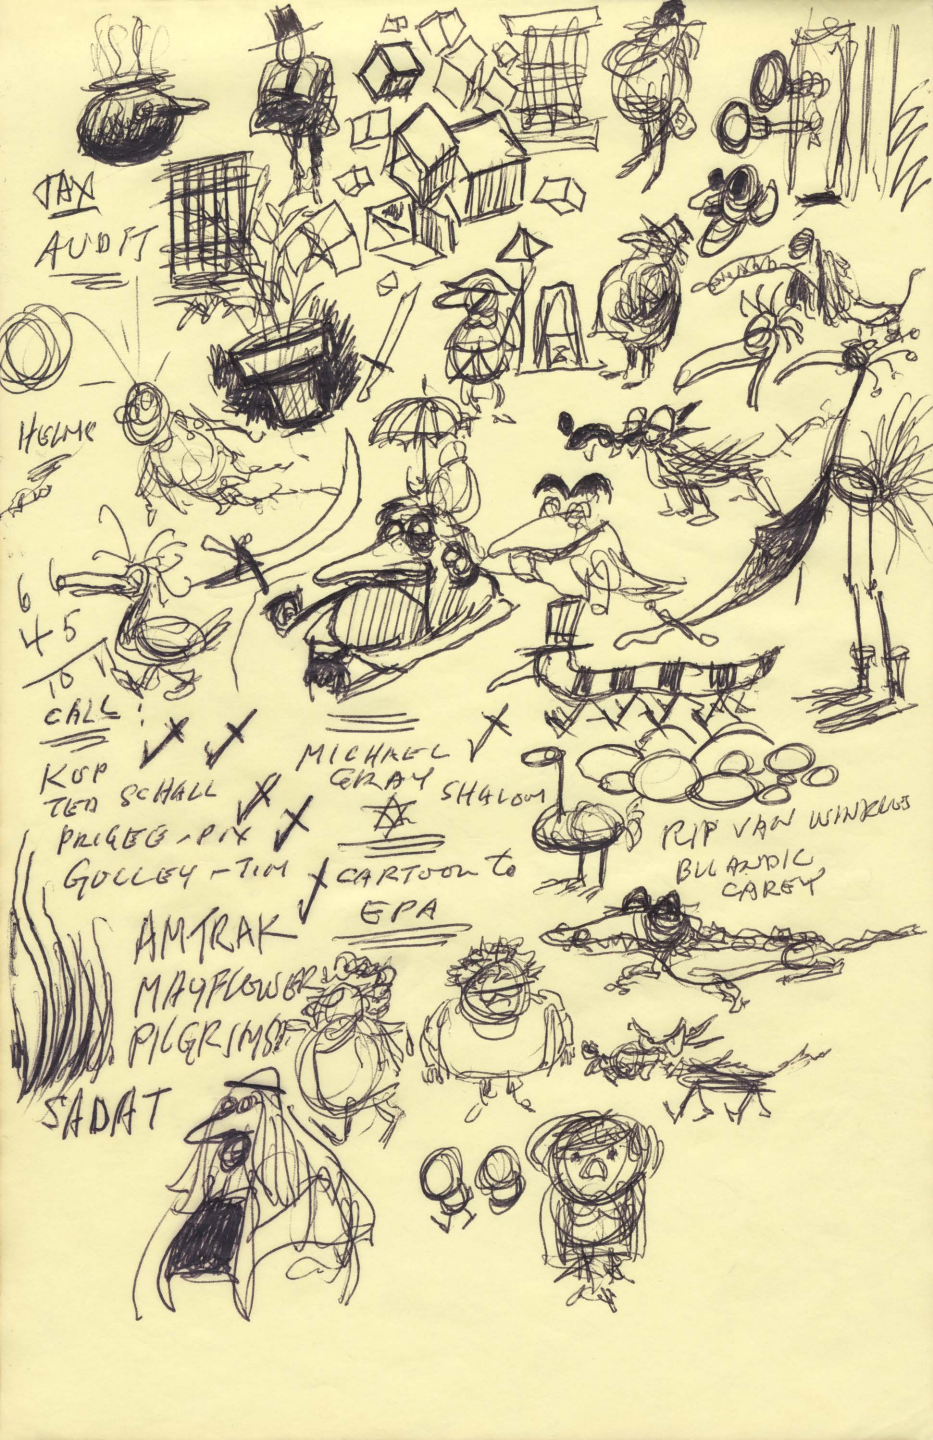 TAX
AUDIT
HELMS
6
4 5
10 11
CALL:
KUP
TED SCHALL
PRIGEE - PIX
GULLEY - TIM
MICHAEL
GRAY
SHALOM
CARTOON to
EPA
RIP VAN WINKLES
BILANDIC
CAREY
AMTRAK
MAYFLOWER
PILGRIMS
SADAT